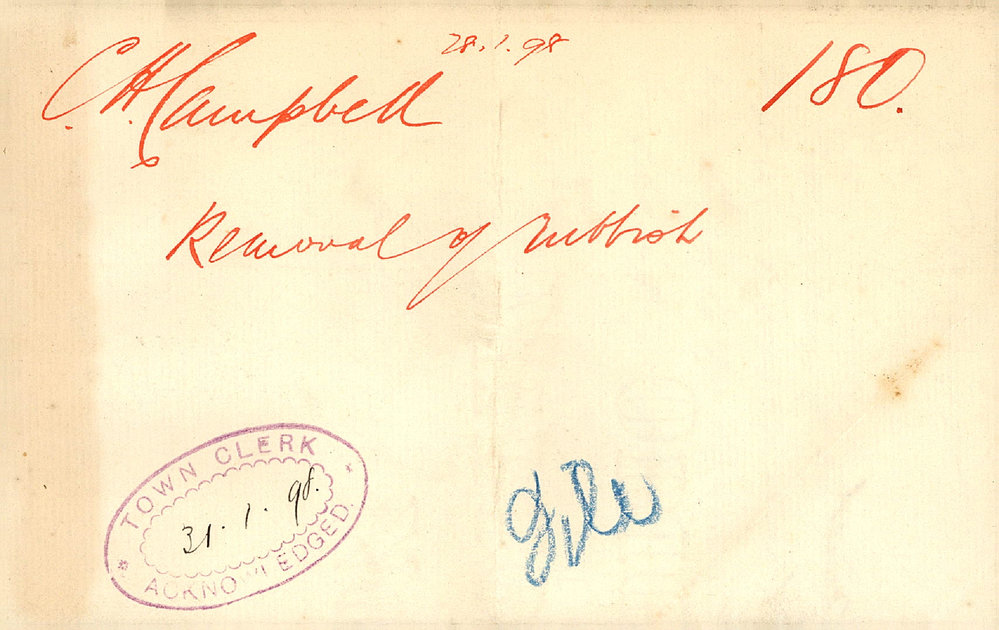 28.1.98
C.H. Campbell
180.
Removal of rubbish
TOWN CLERK
31.1.98.
ACKNOWLEDGED.
File